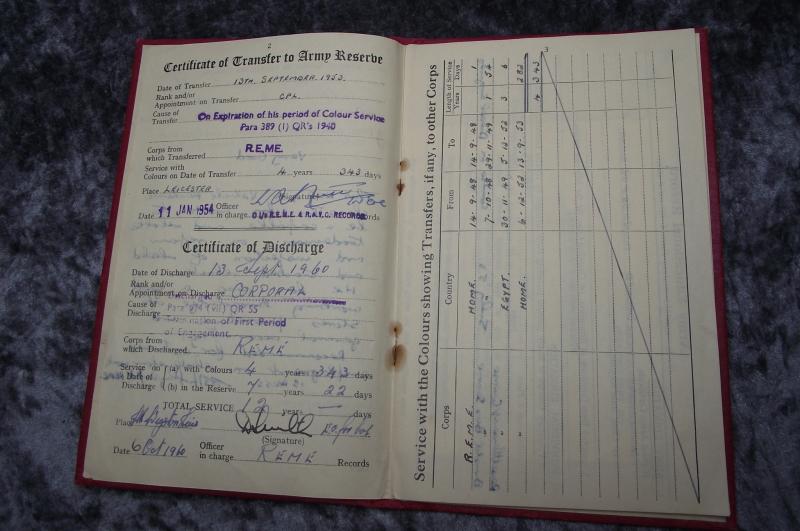 2
Certificate of Transfer to Army Reserve
Date of Transfer 13TH. SEPTEMBER. 1953.
Rank and/or
Appointment on Transfer CPL.
Cause of
Transfer On Expiration of his period of Colour Service
Para 389 (1) QR's 1940
Corps from
which Transferred R.E.M.E.
Service with
Colours on Date of Transfer 4 years 343 days
Place LEICESTER (Signature)
Date 11 JAN 1954 Officer in charge O i/c R.E.M.E. & R.A.V.C. RECORDS Records
Certificate of Discharge
Date of Discharge 13 Sept 1960
Rank and/or
Appointment on Discharge CORPORAL
Cause of
Discharge QR 55
Termination of First Period
of Engagement
Corps from
which Discharged REME
Service on (a) with Colours 4 years 343 days
Date of
Discharge (b) in the Reserve 7 years 22 days
TOTAL SERVICE 12 years — days
Place
(Signature)
Date 6 Oct 1960 Officer in charge REME Records
3
Service with the Colours showing Transfers, if any, to other Corps
Corps Country From To Length of Service Years Days
R.E.M.E. HOME. 14-9-48 14-9-48 1
" " 7-10-48 29-11-49 1 54
" EGYPT. 30-11-49 5-12-52 3 6
" HOME. 6-12-52 13-9-53 282
4 343